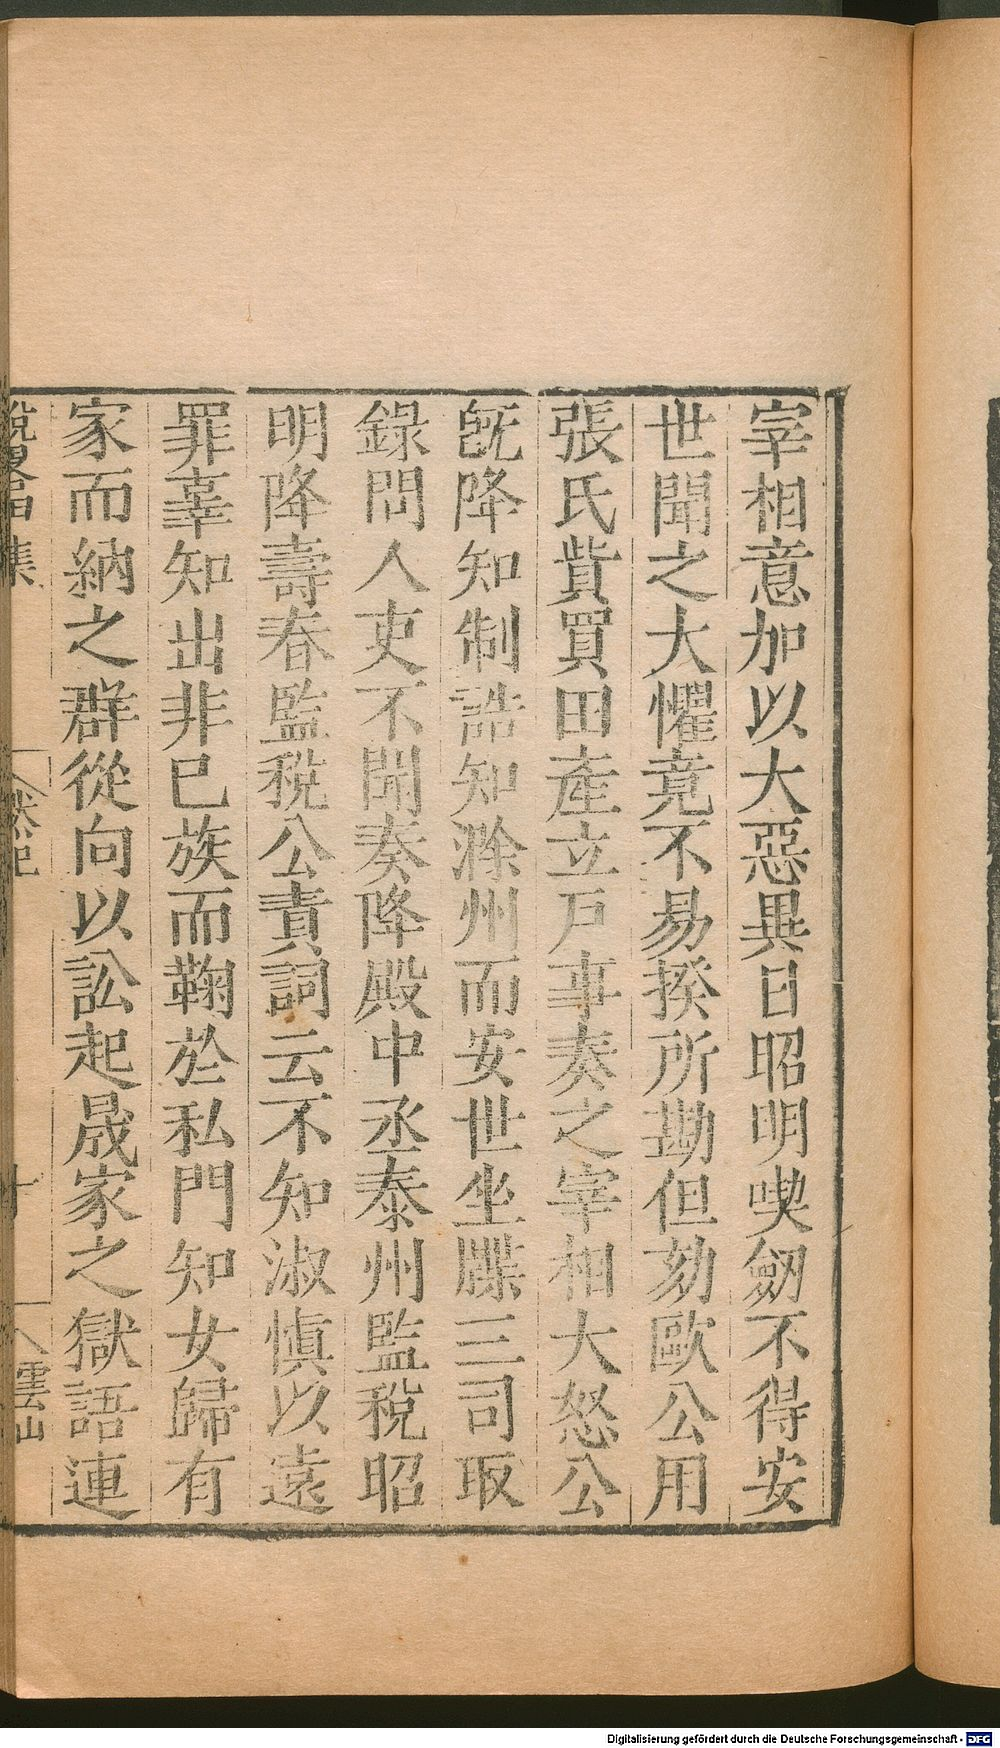 宰相意加以大惡異日昭明喫劒不得安
世聞之大懼竟不易揆所勘但劾歐公用
張氏貲買田產立戶事奏之宰相大怒公
旣降知制誥知滁州而安世坐牒三司取
錄問人吏不聞奏降殿中丞泰州監稅昭
明降壽春監稅公責詞云不知淑慎以遠
罪辜知出非已族而鞠於私門知女歸有
家而納之群從向以訟起晟家之獄語連
集
默記
十
雲山
Digitalisierung gefördert durch die Deutsche Forschungsgemeinschaft - DFG